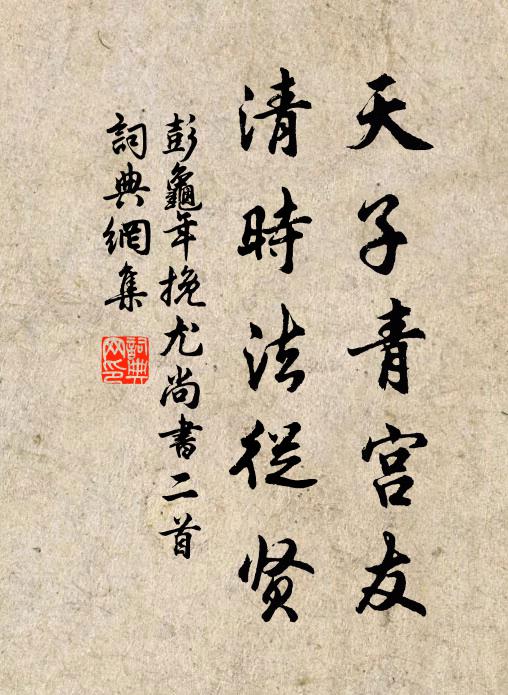 天子青宫友
清時法從贤
彭龜年挽尤尚書二首
詞典網集
詞典
网印